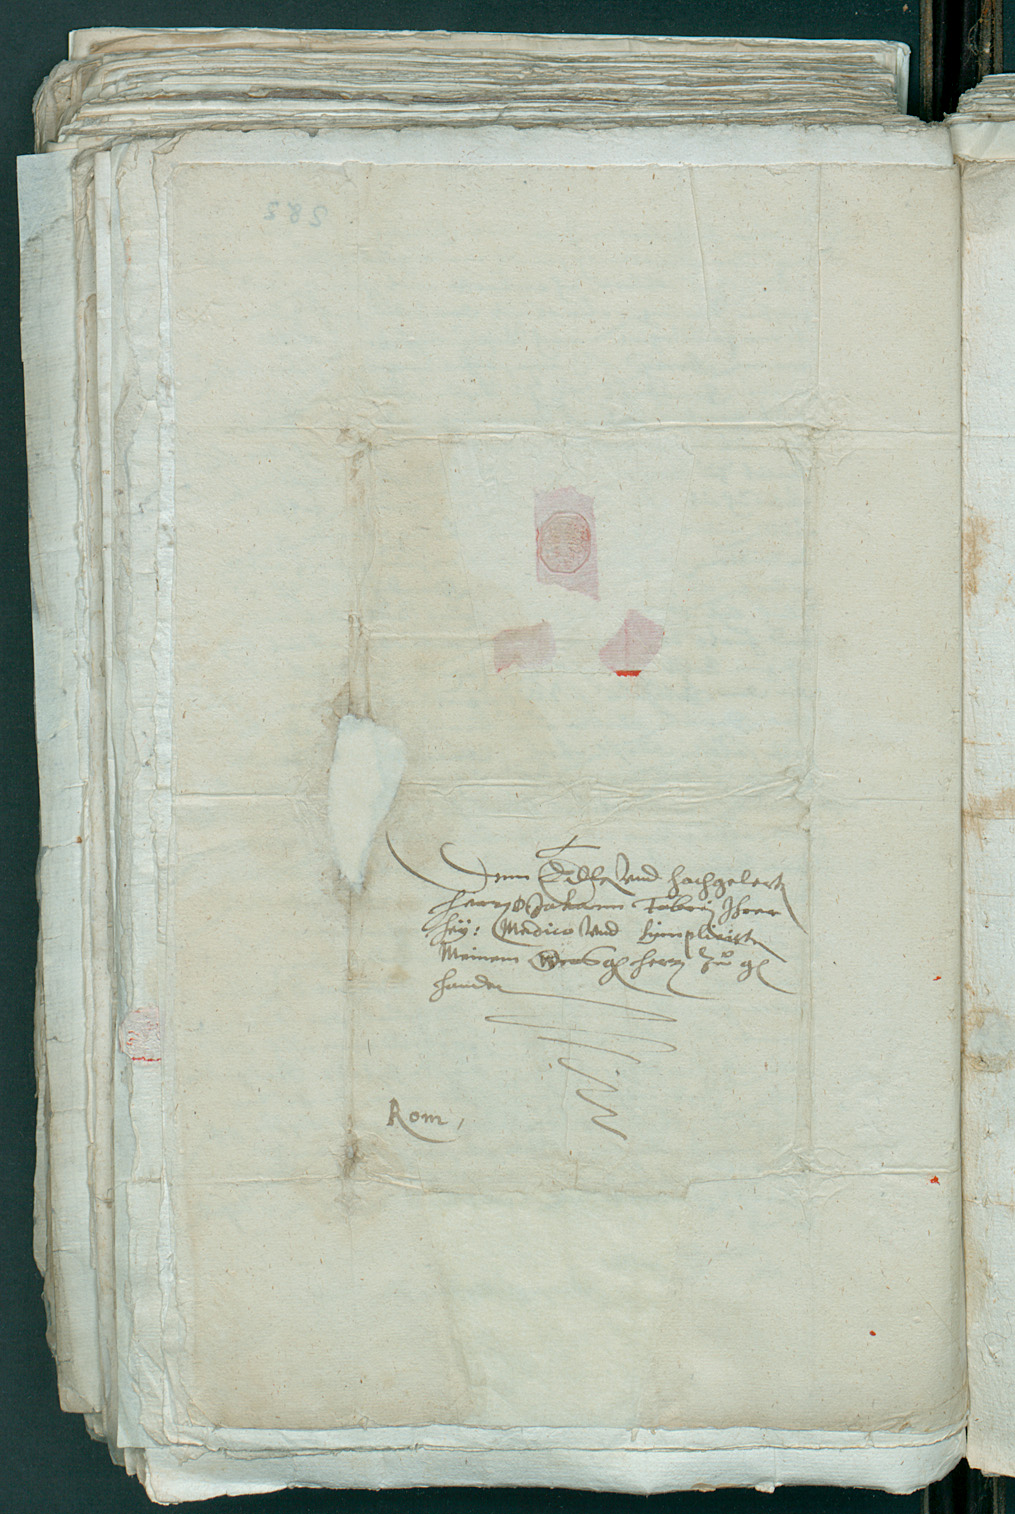 Dem Edlen vnd hochgelert
herrn D Johann Fabrj Ihrer
hey: Medico vnd Simplicist
Meinem g herrn Zu
handen
Rom,